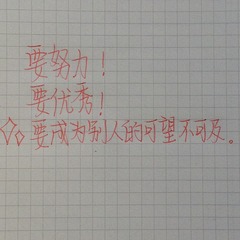 要努力！
要优秀！
要成为别人的可望不可及。